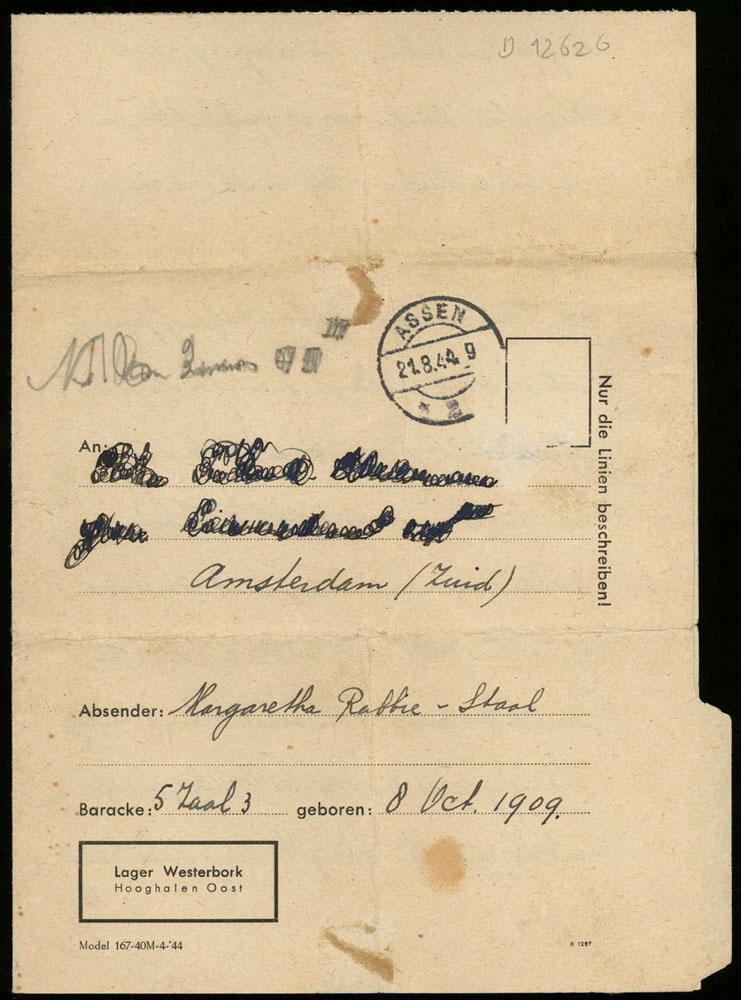 D 12626
ASSEN
21.8.44. 9
Nur die Linien beschreiben!
An:
Amsterdam (Zuid)
Absender: Margaretha Rabbie - Staal
Baracke: 5 Zaal 3 geboren: 8 Oct. 1909.
Lager Westerbork
Hooghalen Oost
Model 167-40M-4-'44
K 1287